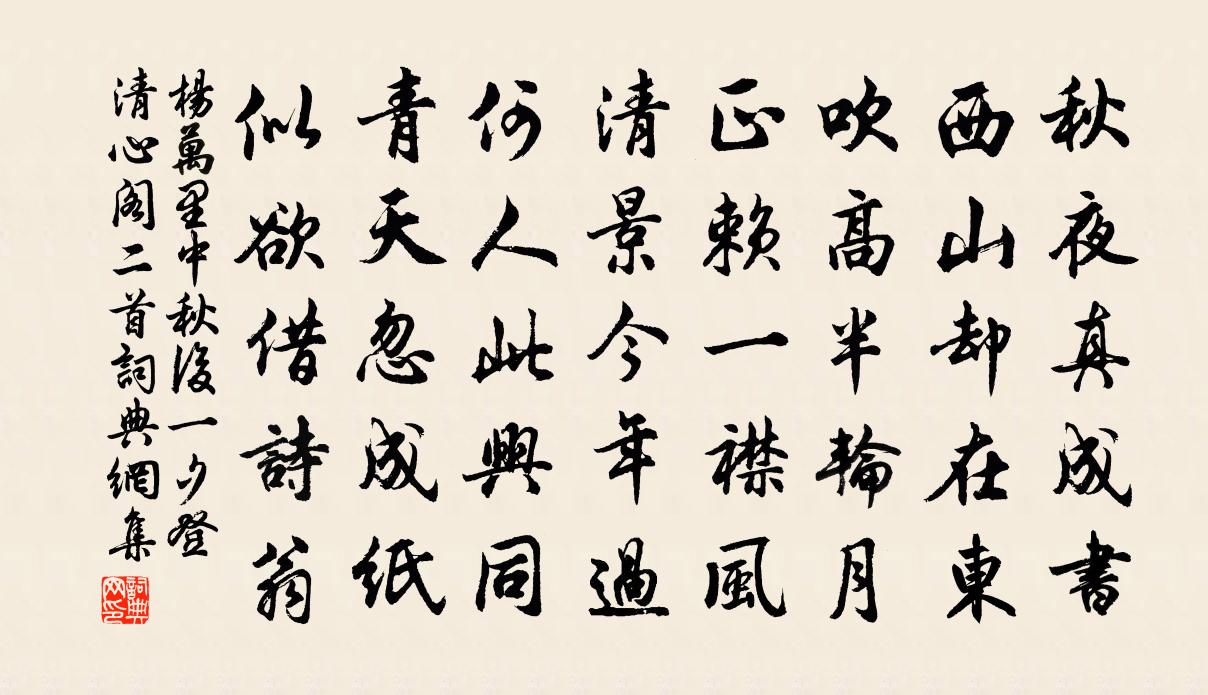 秋夜真成書
西山却在東
吹高半輪月
正賴一襟風
清景今年過
何人此興同
青天忽成紙
似欲借詩翁
楊萬里中秋後一夕登
清心閣二首詞典網集
詞典网印